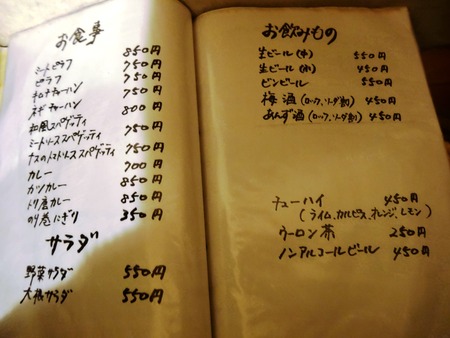 お食事
ミートピラフ 850円
ピラフ 750円
キムチチャーハン 750円
ネギチャーハン 750円
和風スパゲッティ 800円
ミートソーススパゲッティ 750円
ナスのトマトソーススパゲッティ 750円
カレー 700円
カツカレー 850円
トリ唐カレー 850円
のり巻にぎり 350円
サラダ
野菜サラダ 550円
大根サラダ 550円
お飲みもの
生ビール(中) 550円
生ビール(小) 450円
ビンビール 550円
梅酒(ロック、ソーダ割) 450円
あんず酒(ロック、ソーダ割) 450円
チューハイ 450円
(ライム、カルピス、オレンジ、レモン)
ウーロン茶 250円
ノンアルコールビール 450円